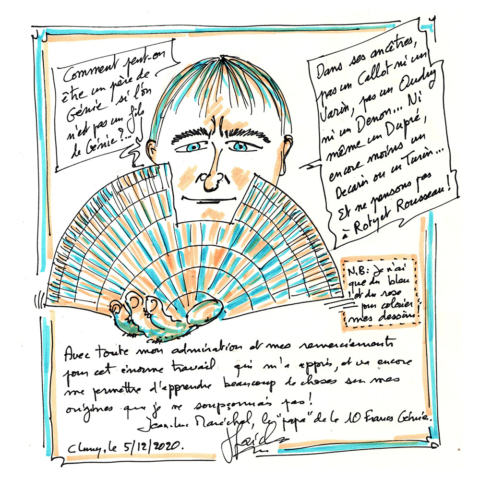 Comment peut-on
être un père de
Génie si l'on
n'est pas un fils
de Génie ?...
Dans ses ancêtres,
pas un Callot ni un
Varin, pas un Oudry
ni un Denon... Ni
même un Dupré,
encore moins un
Decaris ou un Turin...
Et ne pensons pas
à Rotyet Rousseau !
N.B: Je n'ai
que du bleu
et du rose
pour colorier
mes dessins.
Avec toute mon admiration et mes remerciements
pour cet énorme travail qui m'a appris, et va encore
me permettre d'apprendre beaucoup de choses sur mes
origines que je ne soupçonnais pas !
Jean-Luc Maréchal, le "papa" de le 10 Francs Génie.
Cluny, le 5/12/2020.